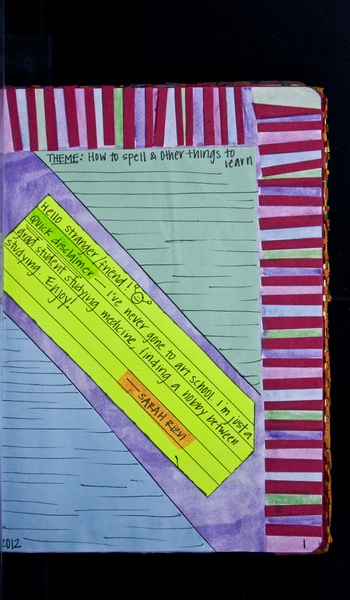 THEME: How to spell & other things to
learn
Hello stranger/friend!
Quick disclaimer — I've never gone to art school. I'm just a
grad student studying medicine, finding a hobby between
studying. Enjoy!
— SARAH
2012
1